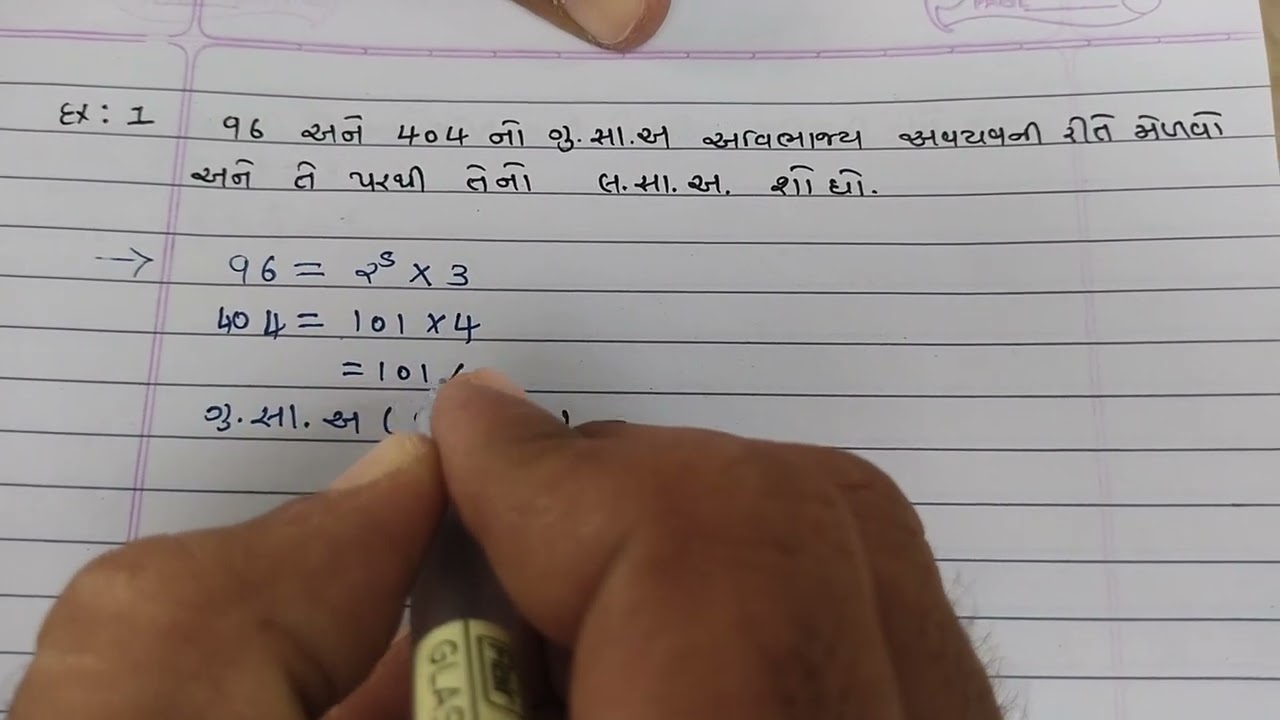 Ex : 1 96 અને 404 નો ગુ.સા.અ અવિભાજ્ય અવયવની રીતે મેળવો
અને તે પરથી તેનો લ.સા.અ. શોધો.
→ 96 = 2⁵ × 3
404 = 101 × 4
= 101
ગુ.સા.અ (
GLAS